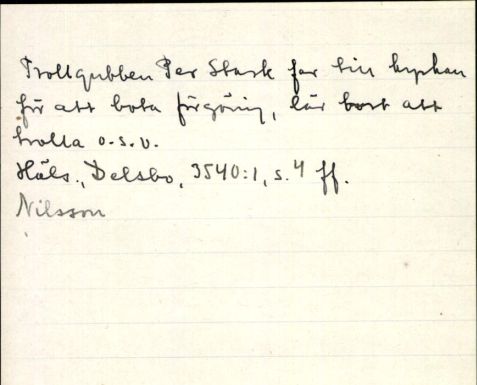 Trollgubben Per Stark far till kyrkan
för att bota förgöring, lär bort att
trolla o.s.v.
Häls., Delsbo, 3540:1, s. 4 ff.
Nilsson